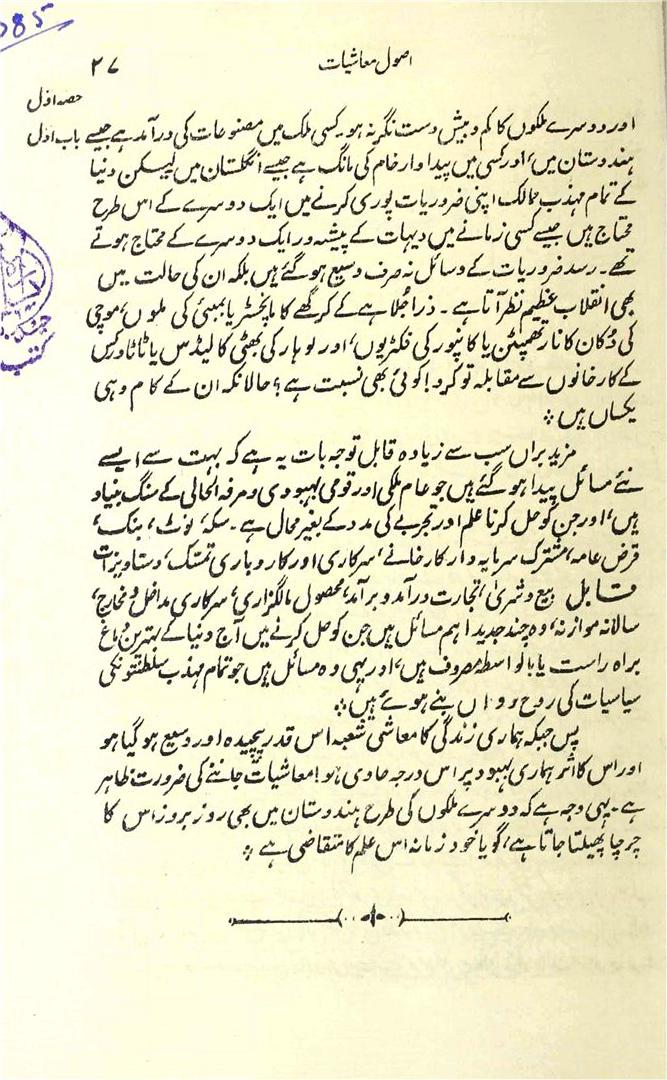 285
اصول معاشیات
۲۷
حصہ اول
باب اول
اور دوسرے ملکوں کا کم و بیش دست نگر نہ ہو۔ کسی ملک میں مصنوعات کی درآمد ہے جیسے
ہندوستان میں، اور کسی میں پیداوار خام کی مانگ ہے جیسے انگلستان میں لیسکن دنیا
کے تمام مہذب ممالک اپنی ضروریات پوری کرنے میں ایک دوسرے کے اس طرح
محتاج ہیں جیسے کسی زمانے میں دیہات کے پیشہ ور ایک دوسرے کے محتاج ہوتے
تھے۔ رسد ضروریات کے وسائل نہ صرف وسیع ہو گئے ہیں بلکہ ان کی حالت میں
بھی انقلاب عظیم نظر آتا ہے۔ ذرا جلاہے کے کرگھے کا مانچسٹر یا بمبئی کی ملوں، موچی
کی دُکان کا نارتھمپٹن یا کانپور کی فکٹریوں، اور لوہار کی بھٹی کا لیڈس یا ٹاٹا ورکس
کے کارخانوں سے مقابلہ تو کرو! کوئی بھی نسبت ہے؟ حالانکہ ان کے کام وہی
یکساں ہیں ؞
مزید براں سب سے زیادہ قابل توجہ بات یہ ہے کہ بہت سے ایسے
نئے مسائل پیدا ہو گئے ہیں جو عام ملکی اور قومی بہبودی و مرفہ الحالی کے سنگ بنیاد
ہیں، اور جن کو حل کرنا علم اور تجربے کی مدد کے بغیر محال ہے۔ سکہ، نوٹ، بنک،
قرض عامہ، مشترک سرمایہ دار کارخانے، سرکاری اور کاروباری تمسک، دستاویزات
قابل بیع و شریٰ، تجارت درآمد و برآمد، محصول مالگزاری، سرکاری مداخل و مخارج،
سالانہ موازنہ، وہ چند جدید اہم مسائل ہیں جن کو حل کرنے میں آج دنیا کے بہترین دماغ
براہ راست یا بالواسطہ مصروف ہیں، اور یہی وہ مسائل ہیں جو تمام مہذب سلطنتونکی
سیاسیات کی روح رواں بنے ہوئے ہیں ؞
پس جبکہ ہماری زندگی کا معاشی شعبہ اس قدر پیچیدہ اور وسیع ہو گیا ہو
اور اس کا اثر ہماری بہبود پر اس درجہ حاوی ہو! معاشیات جاننے کی ضرورت ظاہر
ہے۔ یہی وجہ ہے کہ دوسرے ملکوں کی طرح ہندوستان میں بھی روز بروز اس کا
چرچا پھیلتا جاتا ہے، گویا خود زمانہ اس علم کا متقاضی ہے ؞